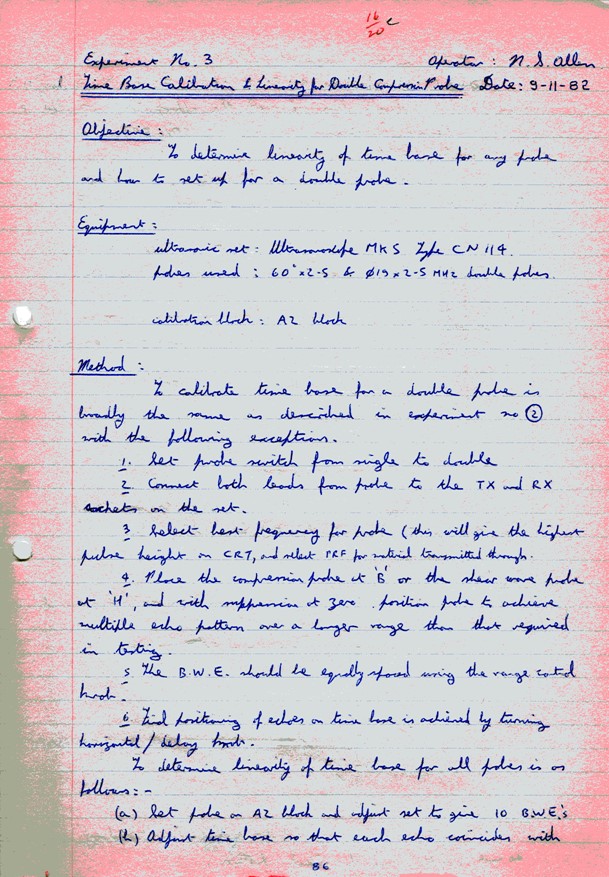 16/20 c
Experiment No. 3 Operator: N. S. Allen
Time Base Calibration & Linearity for Double Compression Probe Date: 9-11-82
Objective:
To determine linearity of time base for any probe
and how to set up for a double probe.
Equipment:
ultrasonic set: Ultrasonoscope MKS Type CN 114.
probes used: 60° x 2-5 & Ø19 x 2-5 MHz double probes.
calibration block: A2 block
Method:
To calibrate time base for a double probe is
broadly the same as described in experiment no ②
with the following exceptions.
1. Set probe switch from single to double
2 Connect both leads from probe to the TX and RX
sockets on the set.
3 Select best frequency for probe (this will give the highest
pulse height on CRT, and select PRF for material transmitted through.
4. Place the compression probe at 'B' or the shear wave probe
at 'H', and with suppression at zero. position probe to achieve
multiple echo pattern over a longer range than that required
in testing.
5 The B.W.E. should be equally spaced using the range control
knob.
6 Final positioning of echoes on time base is achieved by turning
horizontal/delay knob.
To determine linearity of time base for all probes is as
follows:-
(a) Set probe on A2 block and adjust set to give 10 B.W.E's
(b) Adjust time base so that each echo coincides with
86